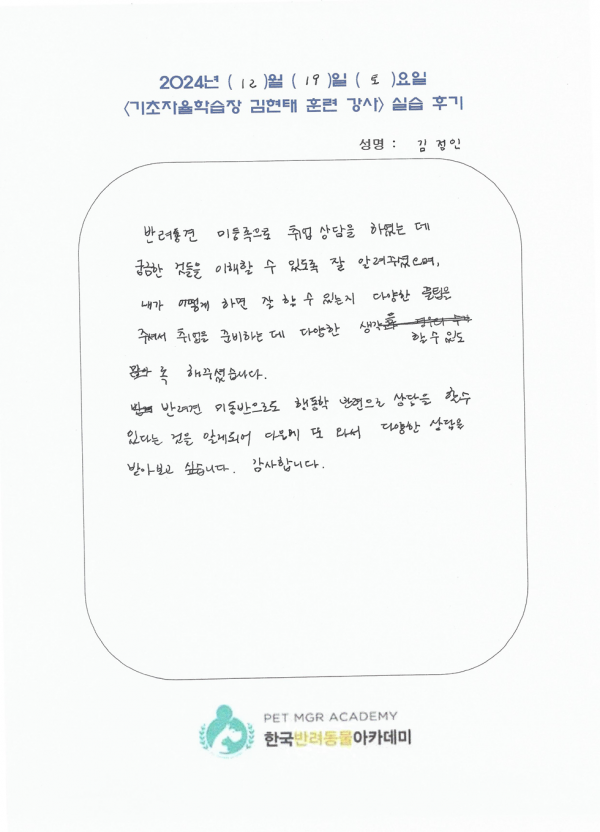 2024년 ( 12 )월 ( 19 )일 ( 토 )요일
<기초자율학습장 김현태 훈련 강사> 실습 후기
성명 : 김정인
반려동견 미동쪽으로 취업 상담을 하였는 데
궁금한 것들을 이해할 수 있도록 잘 알려주셨으며,
내가 어떻게 하면 잘 할 수 있는지 다양한 꿀팁을
주셔서 취업을 준비하는 데 다양한 생각을
할 수 있도
록 해주셨습니다.
반려견 미동반으로도 행동학 관련으로 상담을 할 수
있다는 것을 알게되어 다음에 또 와서 다양한 상담을
받아보고 싶습니다. 감사합니다.
PET MGR ACADEMY
한국반려동물아카데미